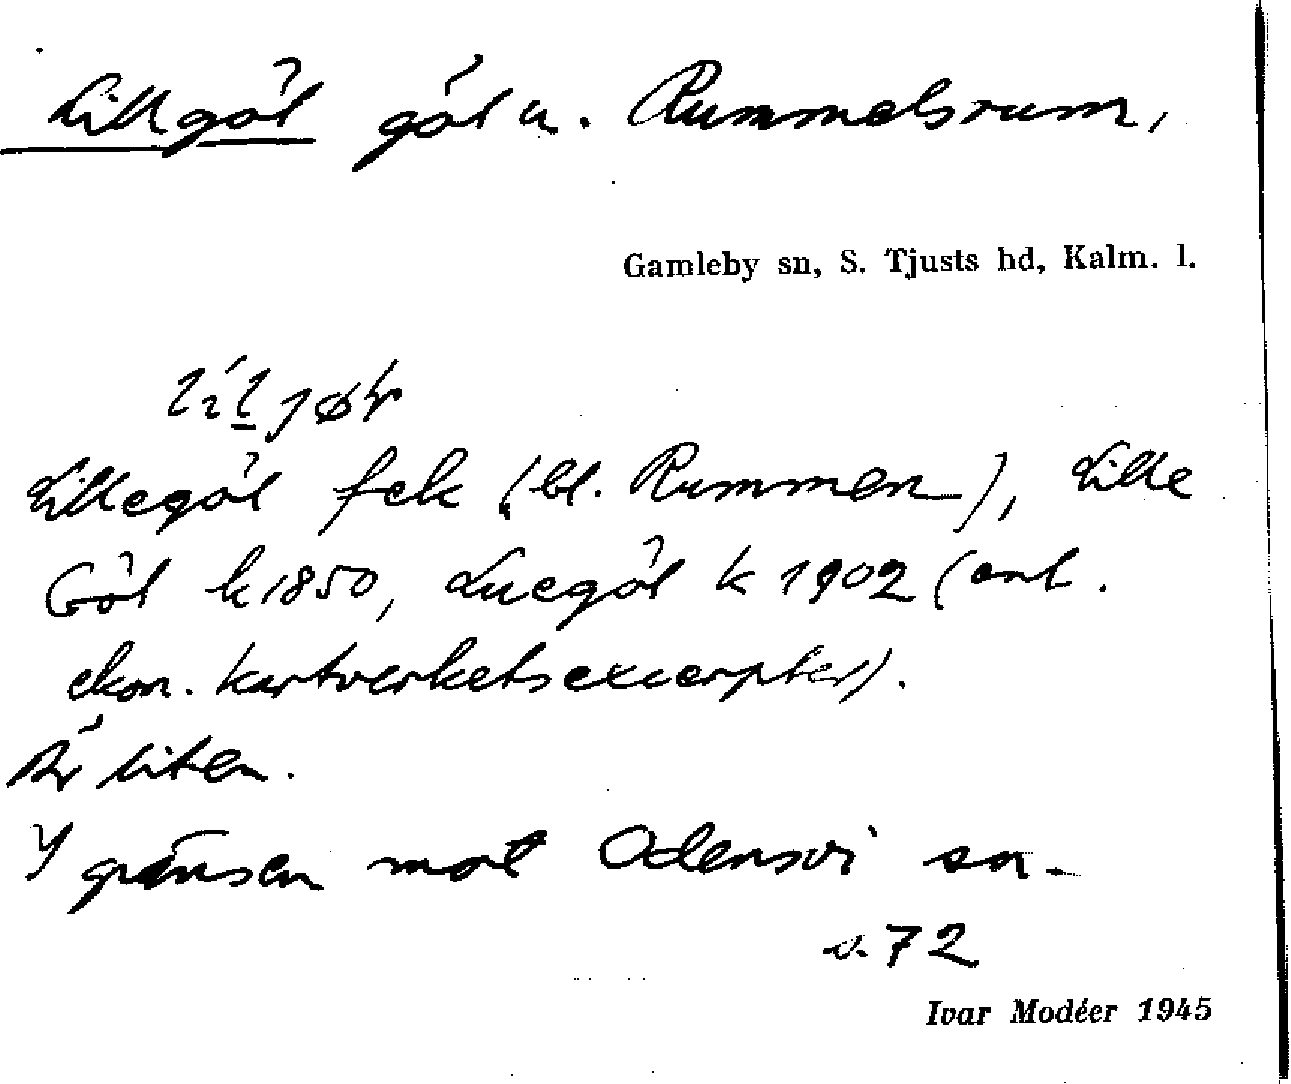 Lillgöl göl u. Rummelsrum,
Gamleby sn, S. Tjusts hd, Kalm. l.
Lillegöl fek (bl. Rummen), Lille
Göl k 1850, Lillegöl k 1902 (enl.
ekon. kartverketsexcerpter).
Är liten.
I gränsen mot Odensvi sn.
s. 72
Ivar Modéer 1945